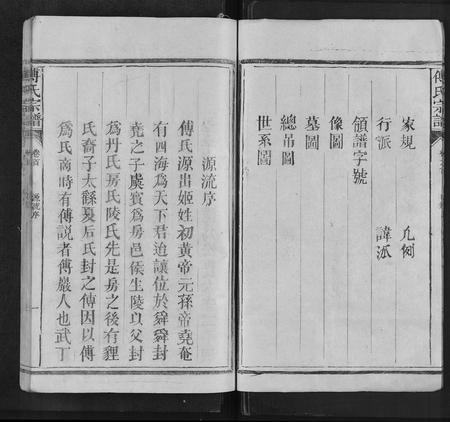 傅氏宗譜
家規 凡例
行派 諱派
領譜字號
像圖
墓圖
總吊圖
世系圖
源流序
傅氏源出姬姓初黃帝元孫帝堯奄
有四海為天下君迨讓位於舜舜封
堯之子虞賓為房邑侯生陵以父封
為丹氏房氏陵氏先是房之後有貍
氏裔子太繇夏后氏封之傅因以傅
為氏商時有傅說者傅巖人也武丁
傅氏宗譜
卷首
源流序
一